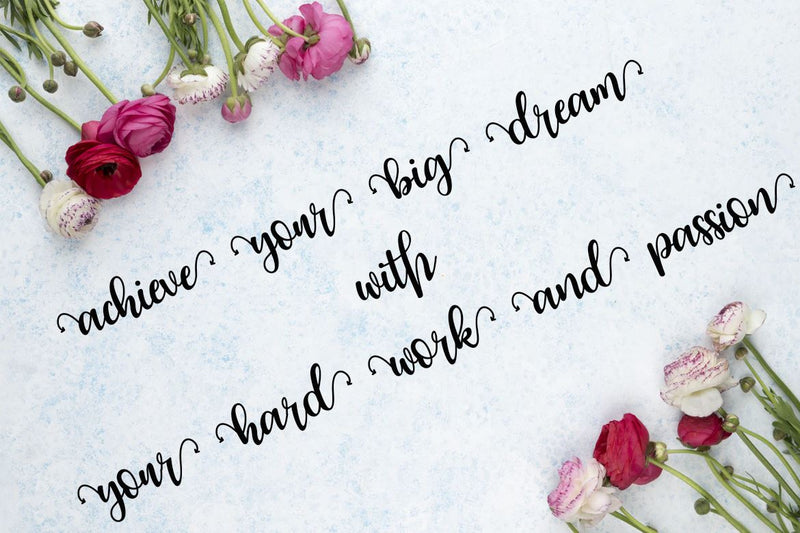 achieve your big dream
with
your hard work and passion